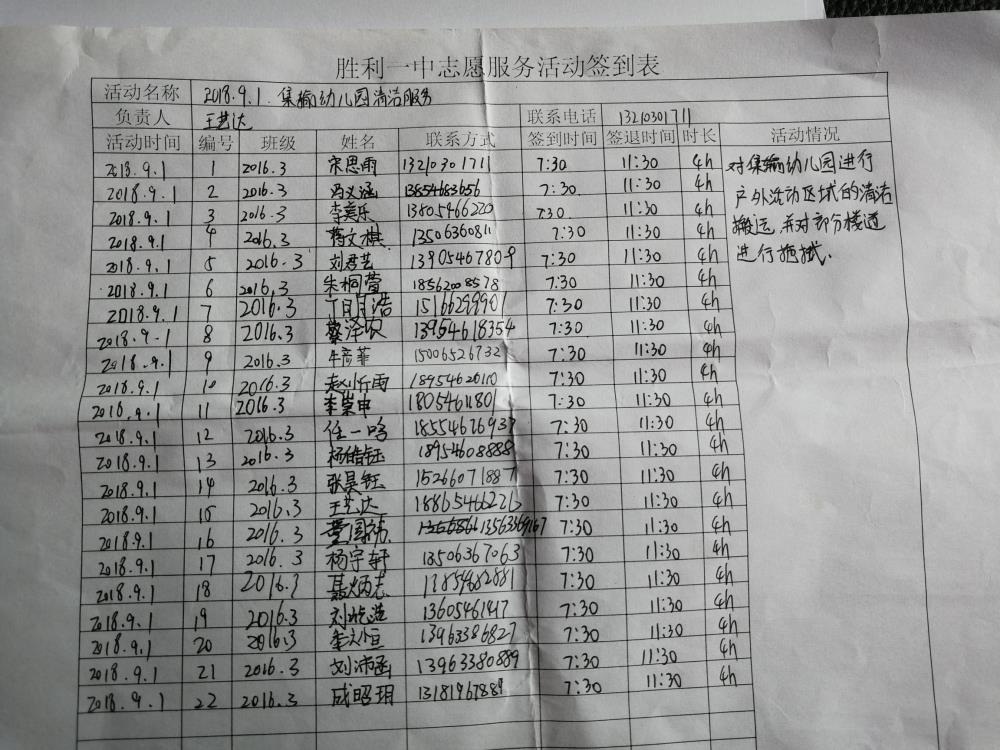 胜利一中志愿服务活动签到表
活动名称 2018.9.1. 集输幼儿园清洁服务
负责人 王艺达 联系电话 13210301711
活动时间 编号 班级 姓名 联系方式 签到时间 签退时间 时长 活动情况
2018.9.1 1 2016.3 宋思雨 13210301711 7:30 11:30 4h 对集输幼儿园进行
2018.9.1. 2 2016.3 冯义涵 13854683656 7:30 11:30 4h 户外活动区域的清洁
2018.9.1 3 2016.3 李奕乐 13805466220 7:30 11:30 4h 搬运,并对部分楼道
2018.9.1 4 2016.3 蒋文棋 13506360811 7:30 11:30 4h 进行拖拭.
2018.9.1 5 2016.3 刘君艺 13905467809 7:30 11:30 4h
2018.9.1 6 2016.3 朱桐萱 18562008578 7:30 11:30 4h
2018.9.1 7 2016.3 丁月浩 15166299901 7:30 11:30 4h
2018.9.1 8 2016.3 蔡泽坎 13954618354 7:30 11:30 4h
2018.9.1 9 2016.3 牛音菲 15006526732 7:30 11:30 4h
2018.9.1 10 2016.3 赵忻雨 18954620110 7:30 11:30 4h
2018.9.1 11 2016.3 李崇申 18054611801 7:30 11:30 4h
2018.9.1 12 2016.3 任一鸣 7:30 11:30 4h
2018.9.1 13 2016.3 杨皓钰 18954608888 7:30 11:30 4h
2018.9.1 14 2016.3 张昊钰 15266071887 7:30 11:30 4h
2018.9.1 15 2016.3 王艺达 18865466223 7:30 11:30 4h
2018.9.1 16 2016.3 董国祎 13563369167 7:30 11:30 4h
2018.9.1 17 2016.3 杨宇轩 13506367063 7:30 11:30 4h
2018.9.1 18 2016.3 聂炳志 13854682881 7:30 11:30 4h
2018.9.1 19 2016.3 刘皓浩 13605461417 7:30 11:30 4h
2018.9.1 20 2016.3 13963386827 7:30 11:30 4h
2018.9.1 21 2016.3 刘沛函 13963380889 7:30 11:30 4h
2018.9.1 22 2016.3 成昭玥 13181967889 7:30 11:30 4h